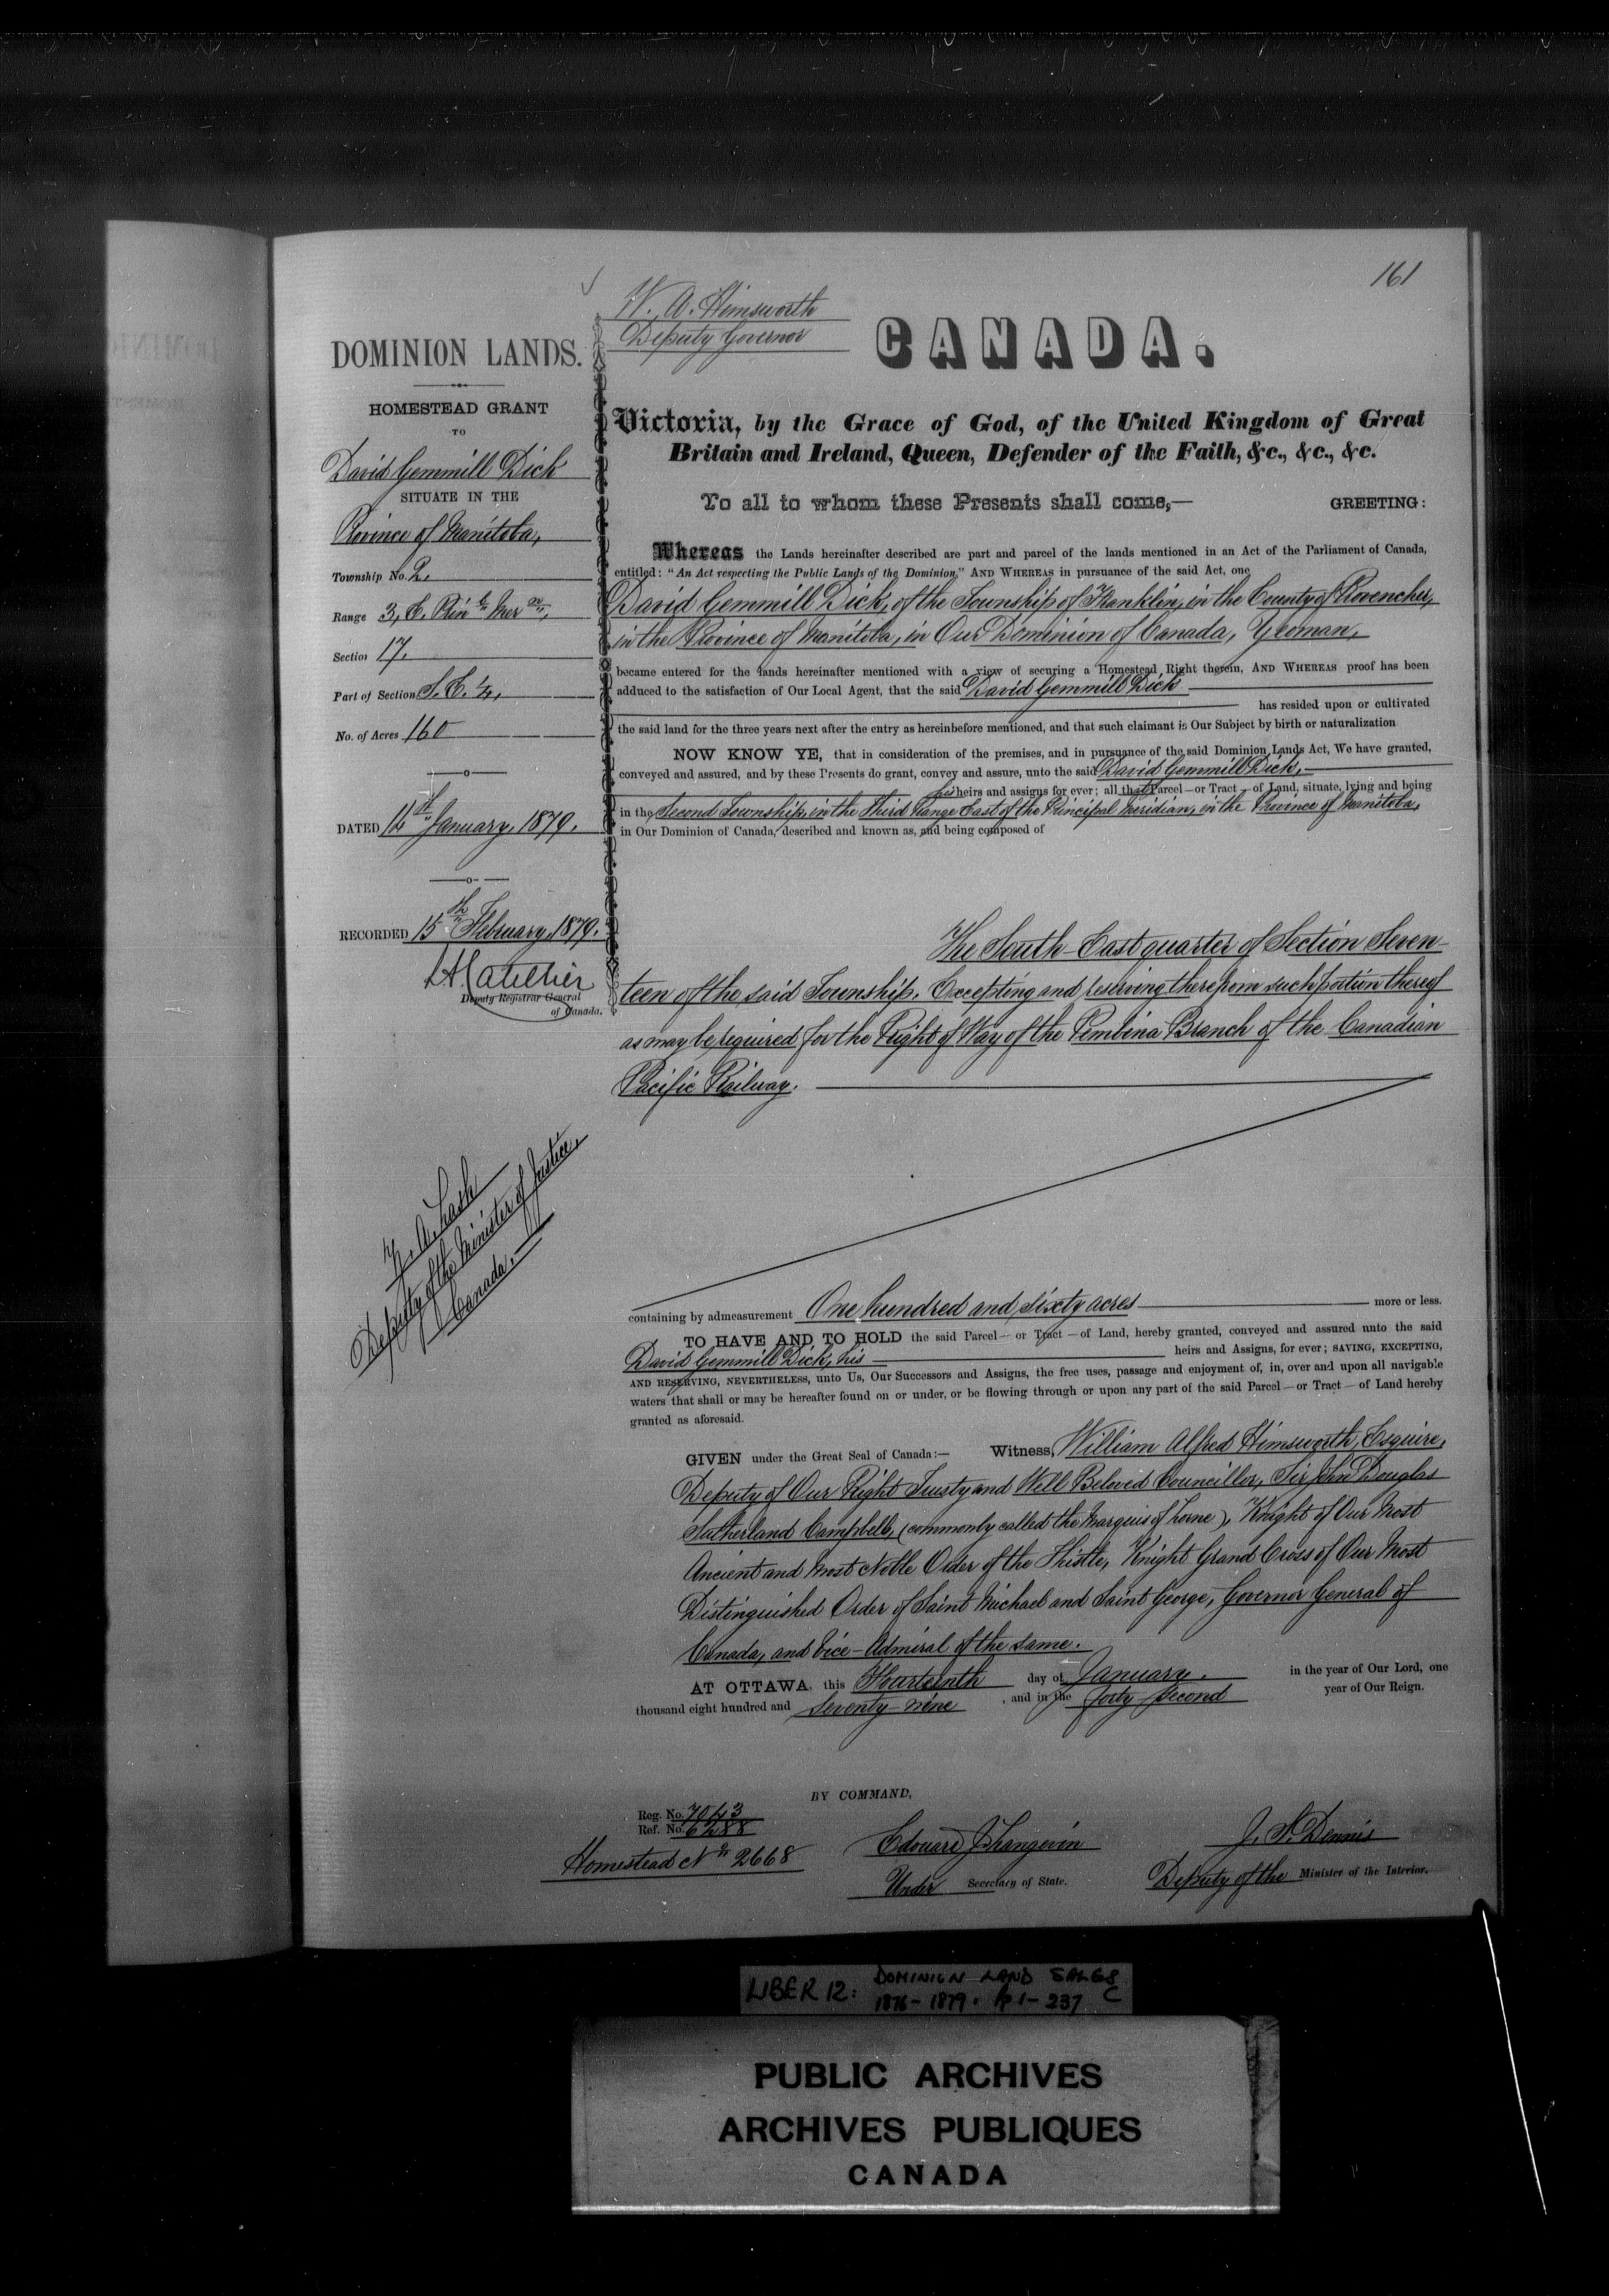 161
W. A. Himsworth
Deputy Governor
CANADA.
DOMINION LANDS.
HOMESTEAD GRANT
TO
David Gemmill Dick
SITUATE IN THE
Province of Manitoba,
Township No. 2.
Range 3, E. Prin l Mer an,
Section 17.
Part of Section S. E. ¼,
No. of Acres 160
DATED 14th January, 1879.
RECORDED 15th February, 1879.
Deputy Registrar General
of Canada.
Z. A. Lash
Deputy of the Minister of Justice,
Canada.
Victoria, by the Grace of God, of the United Kingdom of Great
Britain and Ireland, Queen, Defender of the Faith, &c., &c., &c.
To all to whom these Presents shall come,— GREETING:
Whereas the Lands hereinafter described are part and parcel of the lands mentioned in an Act of the Parliament of Canada,
entitled: "An Act respecting the Public Lands of the Dominion," AND WHEREAS in pursuance of the said Act, one
David Gemmill Dick, of the Township of Franklin, in the County of Provencher,
in the Province of Manitoba, in Our Dominion of Canada, Yeoman,
became entered for the lands hereinafter mentioned with a view of securing a Homestead Right therein, AND WHEREAS proof has been
adduced to the satisfaction of Our Local Agent, that the said David Gemmill Dick
has resided upon or cultivated
the said land for the three years next after the entry as hereinbefore mentioned, and that such claimant is Our Subject by birth or naturalization
NOW KNOW YE, that in consideration of the premises, and in pursuance of the said Dominion Lands Act, We have granted,
conveyed and assured, and by these Presents do grant, convey and assure, unto the said David Gemmill Dick,
his heirs and assigns for ever; all that Parcel—or Tract—of Land, situate, lying and being
in the Second Township, in the Third Range East of the Principal Meridian, in the Province of Manitoba,
in Our Dominion of Canada, described and known as, and being composed of
The South-East quarter of Section Seven-
teen of the said Township. Excepting and reserving therefrom such portion thereof
as may be required for the Right of Way of the Pembina Branch of the Canadian
Pacific Railway.
containing by admeasurement One hundred and sixty acres more or less.
TO HAVE AND TO HOLD the said Parcel—or Tract—of Land, hereby granted, conveyed and assured unto the said
David Gemmill Dick, his heirs and Assigns, for ever; SAVING, EXCEPTING,
AND RESERVING, NEVERTHELESS, unto Us, Our Successors and Assigns, the free uses, passage and enjoyment of, in, over and upon all navigable
waters that shall or may be hereafter found on or under, or be flowing through or upon any part of the said Parcel—or Tract—of Land hereby
granted as aforesaid.
GIVEN under the Great Seal of Canada:— Witness, William Alfred Himsworth, Esquire,
Deputy of Our Right Trusty and Well Beloved Councillor, Sir John Douglas
Sutherland Campbell, (commonly called the Marquis of Lorne), Knight of Our Most
Ancient and Most Noble Order of the Thistle, Knight Grand Cross of Our Most
Distinguished Order of Saint Michael and Saint George, Governor General of
Canada, and Vice-Admiral of the same.
AT OTTAWA, this Fourteenth day of January. in the year of Our Lord, one
thousand eight hundred and seventy nine, and in the forty second year of Our Reign.
BY COMMAND,
Reg. No. 7043
Ref. No. 6288
Homestead No 2668
Edouard J. Langevin
Under Secretary of State.
J. S. Dennis
Deputy of the Minister of the Interior.
LIBER 12: DOMINION LAND SALES
1876-1879. pp 1-237 C
PUBLIC ARCHIVES
ARCHIVES PUBLIQUES
CANADA